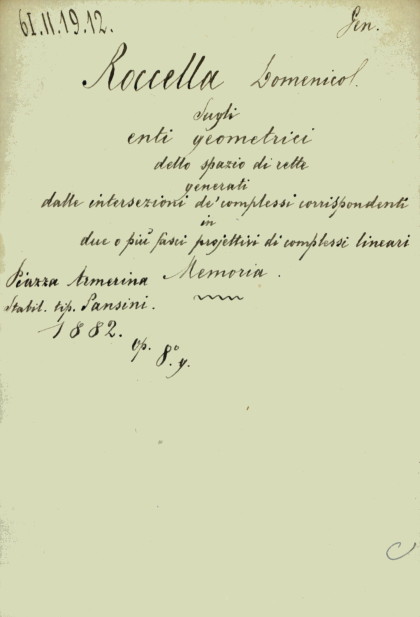 61.II.19.12.
Gen.
Roccella Domenico.
Sugli
enti geometrici
dello spazio di rette
generati
dalle intersezioni de' complessi corrispondenti
in
due o più fasci projettivi di complessi lineari
Memoria.
Piazza Armerina
Stabil. tip. Pansini.
1882.
op. 8.º